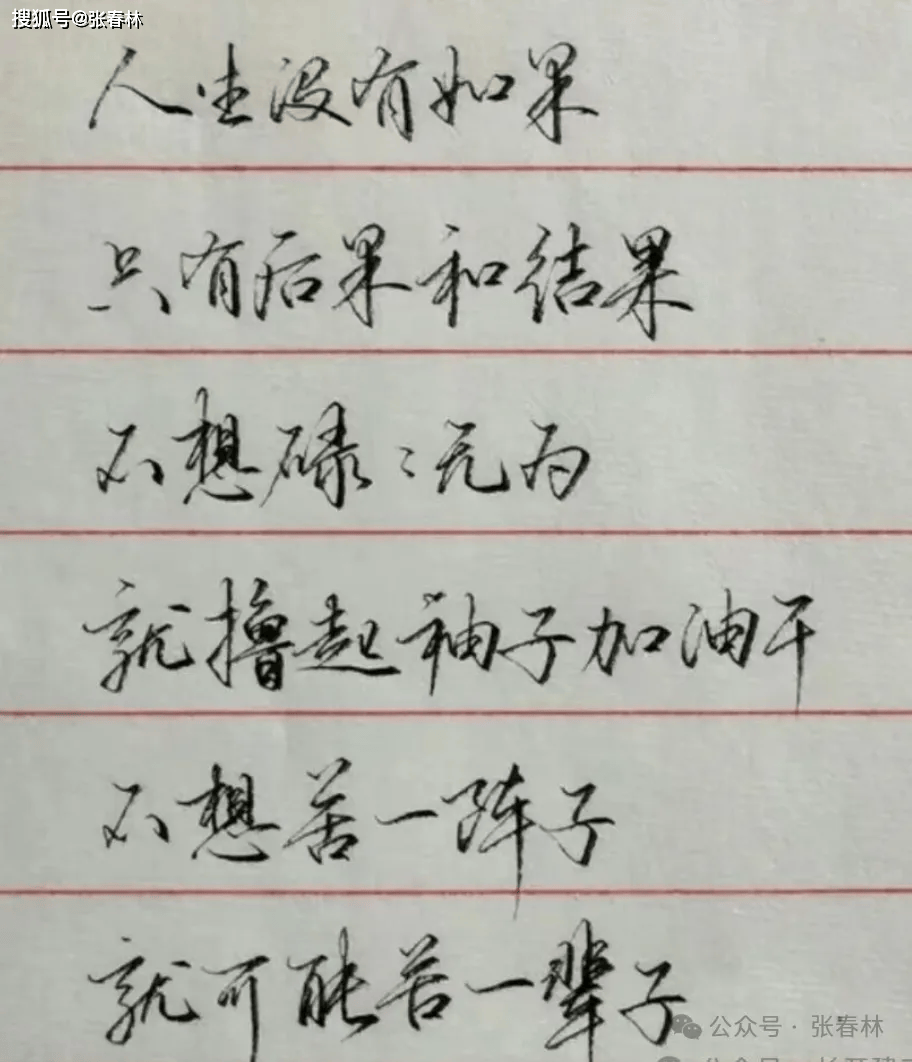 搜狐号@张春林
人生没有如果
只有后果和结果
不想碌々无为
就撸起袖子加油干
不想苦一阵子
就可能苦一辈子
公众号·张春林